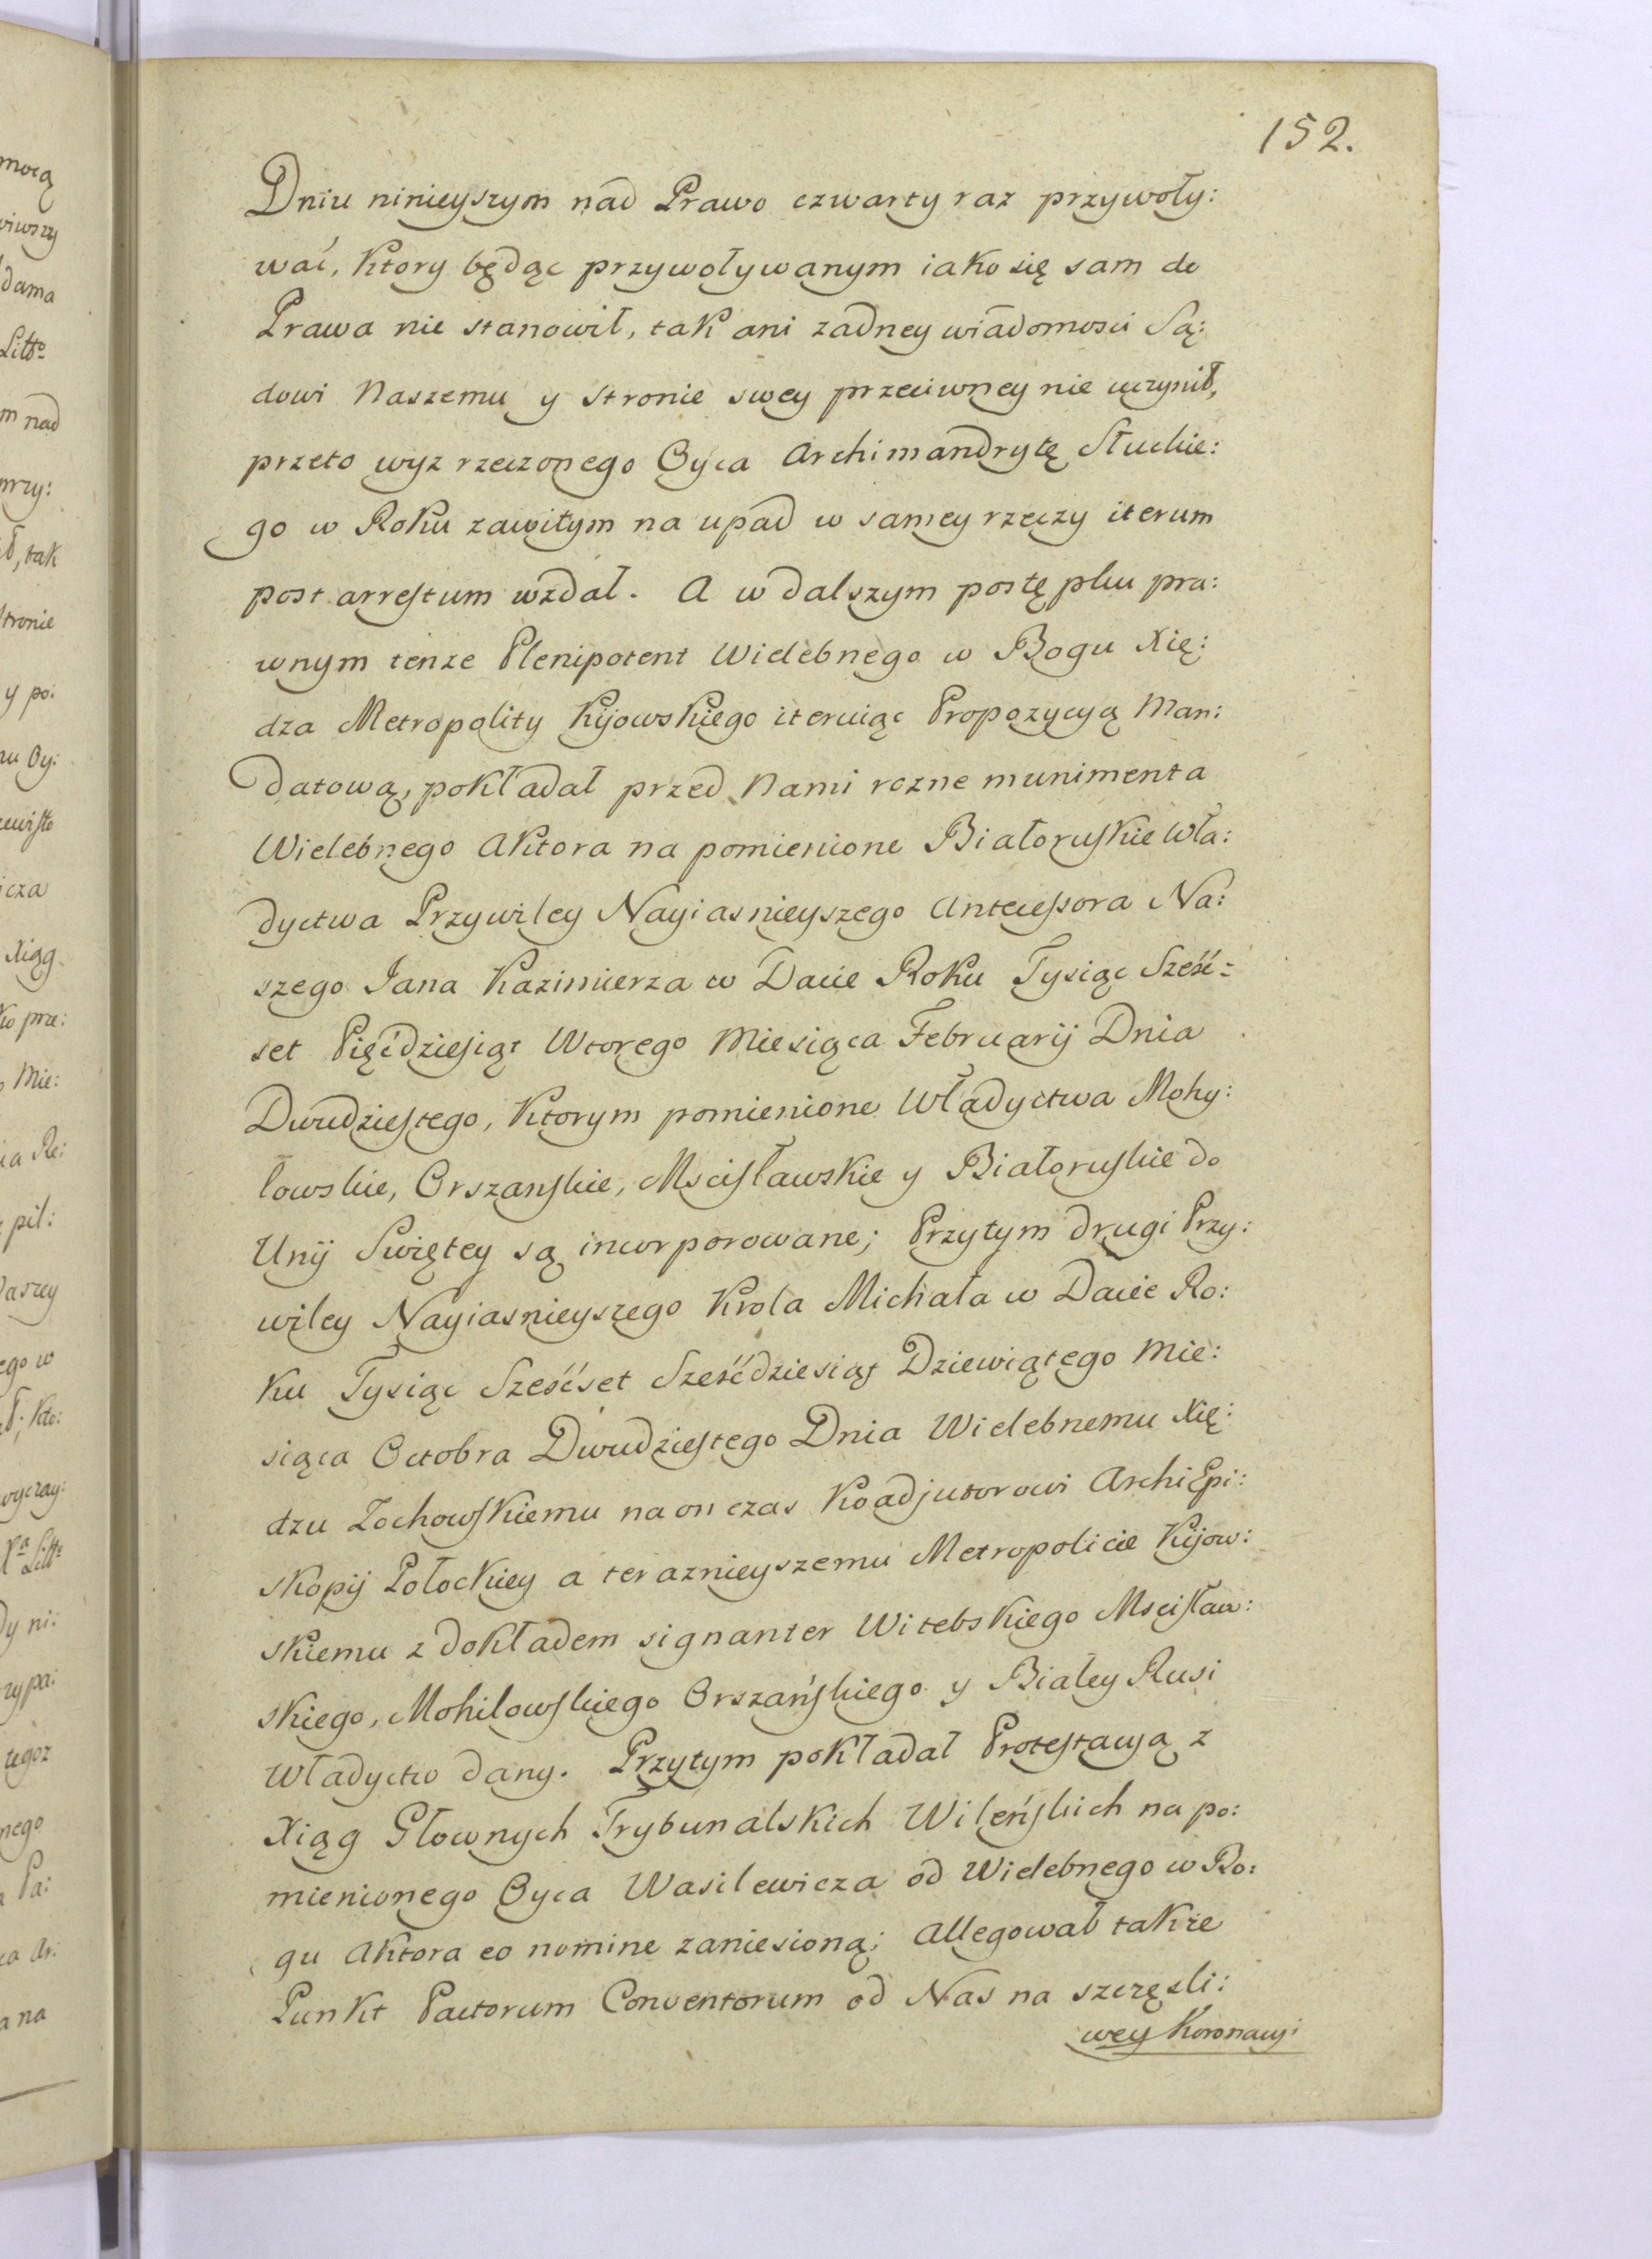 152.
Dniu ninieyszym nad Prawo czwarty raz przywoły:
wać, Ktory będąc przywoływanym iako się sam do
Prawa nie stanowił, tak ani zadney wiadomosci Są:
dowi Naszemu y stronie swey przeciwney nie uczynił,
przeto wyz rzeczonego Oyca Archimandrytę Słuckie:
go w Roku zawitym na upad w samey rzeczy iterum
post arrestum wzdał. A w dalszym postępku pra:
wnym tenze Plenipotent Wielebnego w Bogu Xię:
dza Metropolity Kijowskiego iteruiąc Propozycyą Man:
datową, pokładał przed Nami rozne munimenta
Wielebnego Aktora na pomienione Białoruskie Wła:
dyctwa Przywiley Nayiasnieyszego Antecessora Na:
szego Jana Kazimierza w Dacie Roku Tysiąc Sześć:
set Pięćdziesiąt Wtorego Miesiąca Februarij Dnia
Dwudziestego, Ktorym pomienione Władyctwa Mohy:
łowskie, Orszanskie, Mscisławskie y Białoruskie do
Unij Swiętey są incorporowane; Przytym drugi Przy:
wiley Nayiasnieyszego Krola Michała w Dacie Ro:
ku Tysiąc Sześćset Sześćdziesiąt Dziewiątego Mie:
siąca Octobra Dwudziestego Dnia Wielebnemu Xię:
dzu Zochowskiemu na on czas Koadjutorowi ArchiEpi:
skopij Połockiey a teraznieyszemu Metropolicie Kijow:
skiemu z dokładem signanter Witebskiego Mscisław:
skiego, Mohilowskiego Orszańskiego y Białey Rusi
Władyctw dany. Przytym pokładał Protestacyą z
Xiąg Głownych Trybunalskich Wileńskich na po:
mienionego Oyca Wasilewicza od Wielebnego w Bo:
gu Aktora eo nomine zaniesioną; Allegował takze
Punkt Pactorum Conventorum od Nas na szczęsli:
wey Koronacyi